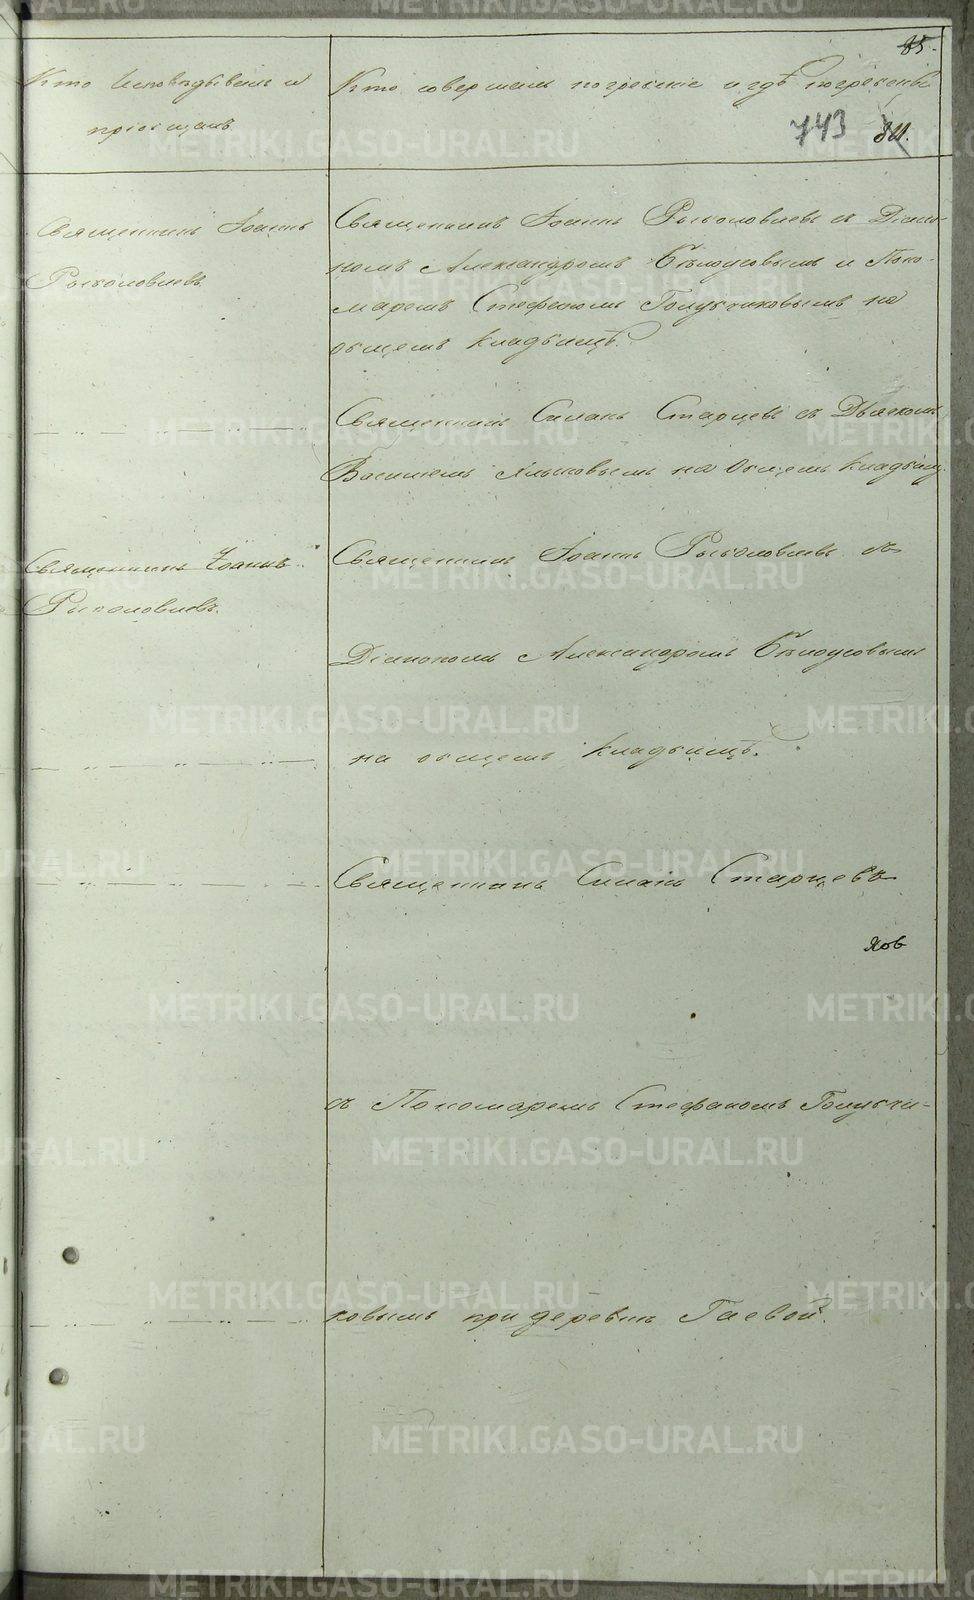 85.
Кто исповѣдывалъ и
пріобщалъ
Кто совершалъ погребеніе и гдѣ погребены
743
Священникъ Іоаннъ
Рыболовлевъ
Священникъ Іоаннъ Рыболовлевъ съ Діако-
номъ Александромъ Бѣлоусовымъ и Поно-
маремъ Стефаномъ Голубчиковымъ на
общемъ кладбищѣ.
Священникъ Силанъ Старцевъ съ Дьячкомъ
Василіемъ на общемъ кладбищ.
Священникъ Іоаннъ
Рыболовлевъ.
Священникъ Іоаннъ Рыболовлевъ съ
Діакономъ Александромъ Бѣлоусовымъ
на общемъ кладбищѣ.
Священникъ Старцевъ
Яков
съ Пономаремъ Стефаномъ Голубчи-
ковымъ при деревнѣ Гаевой.
METRIKI.GASO-URAL.RU